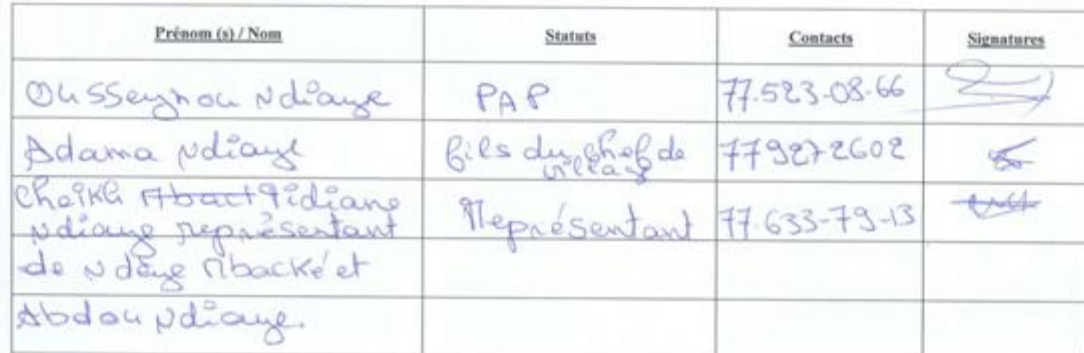 Prénom (s) / Nom Statuts Contacts Signatures
Ousseynou Ndiaye PAP 77.523-08-66
Adama Ndiaye fils du chef de village 779272602
Cheikh Tidiane Ndiaye représentant Représentant 77.633-79-13
de Ndèye Mbacké et
Abdou Ndiaye.